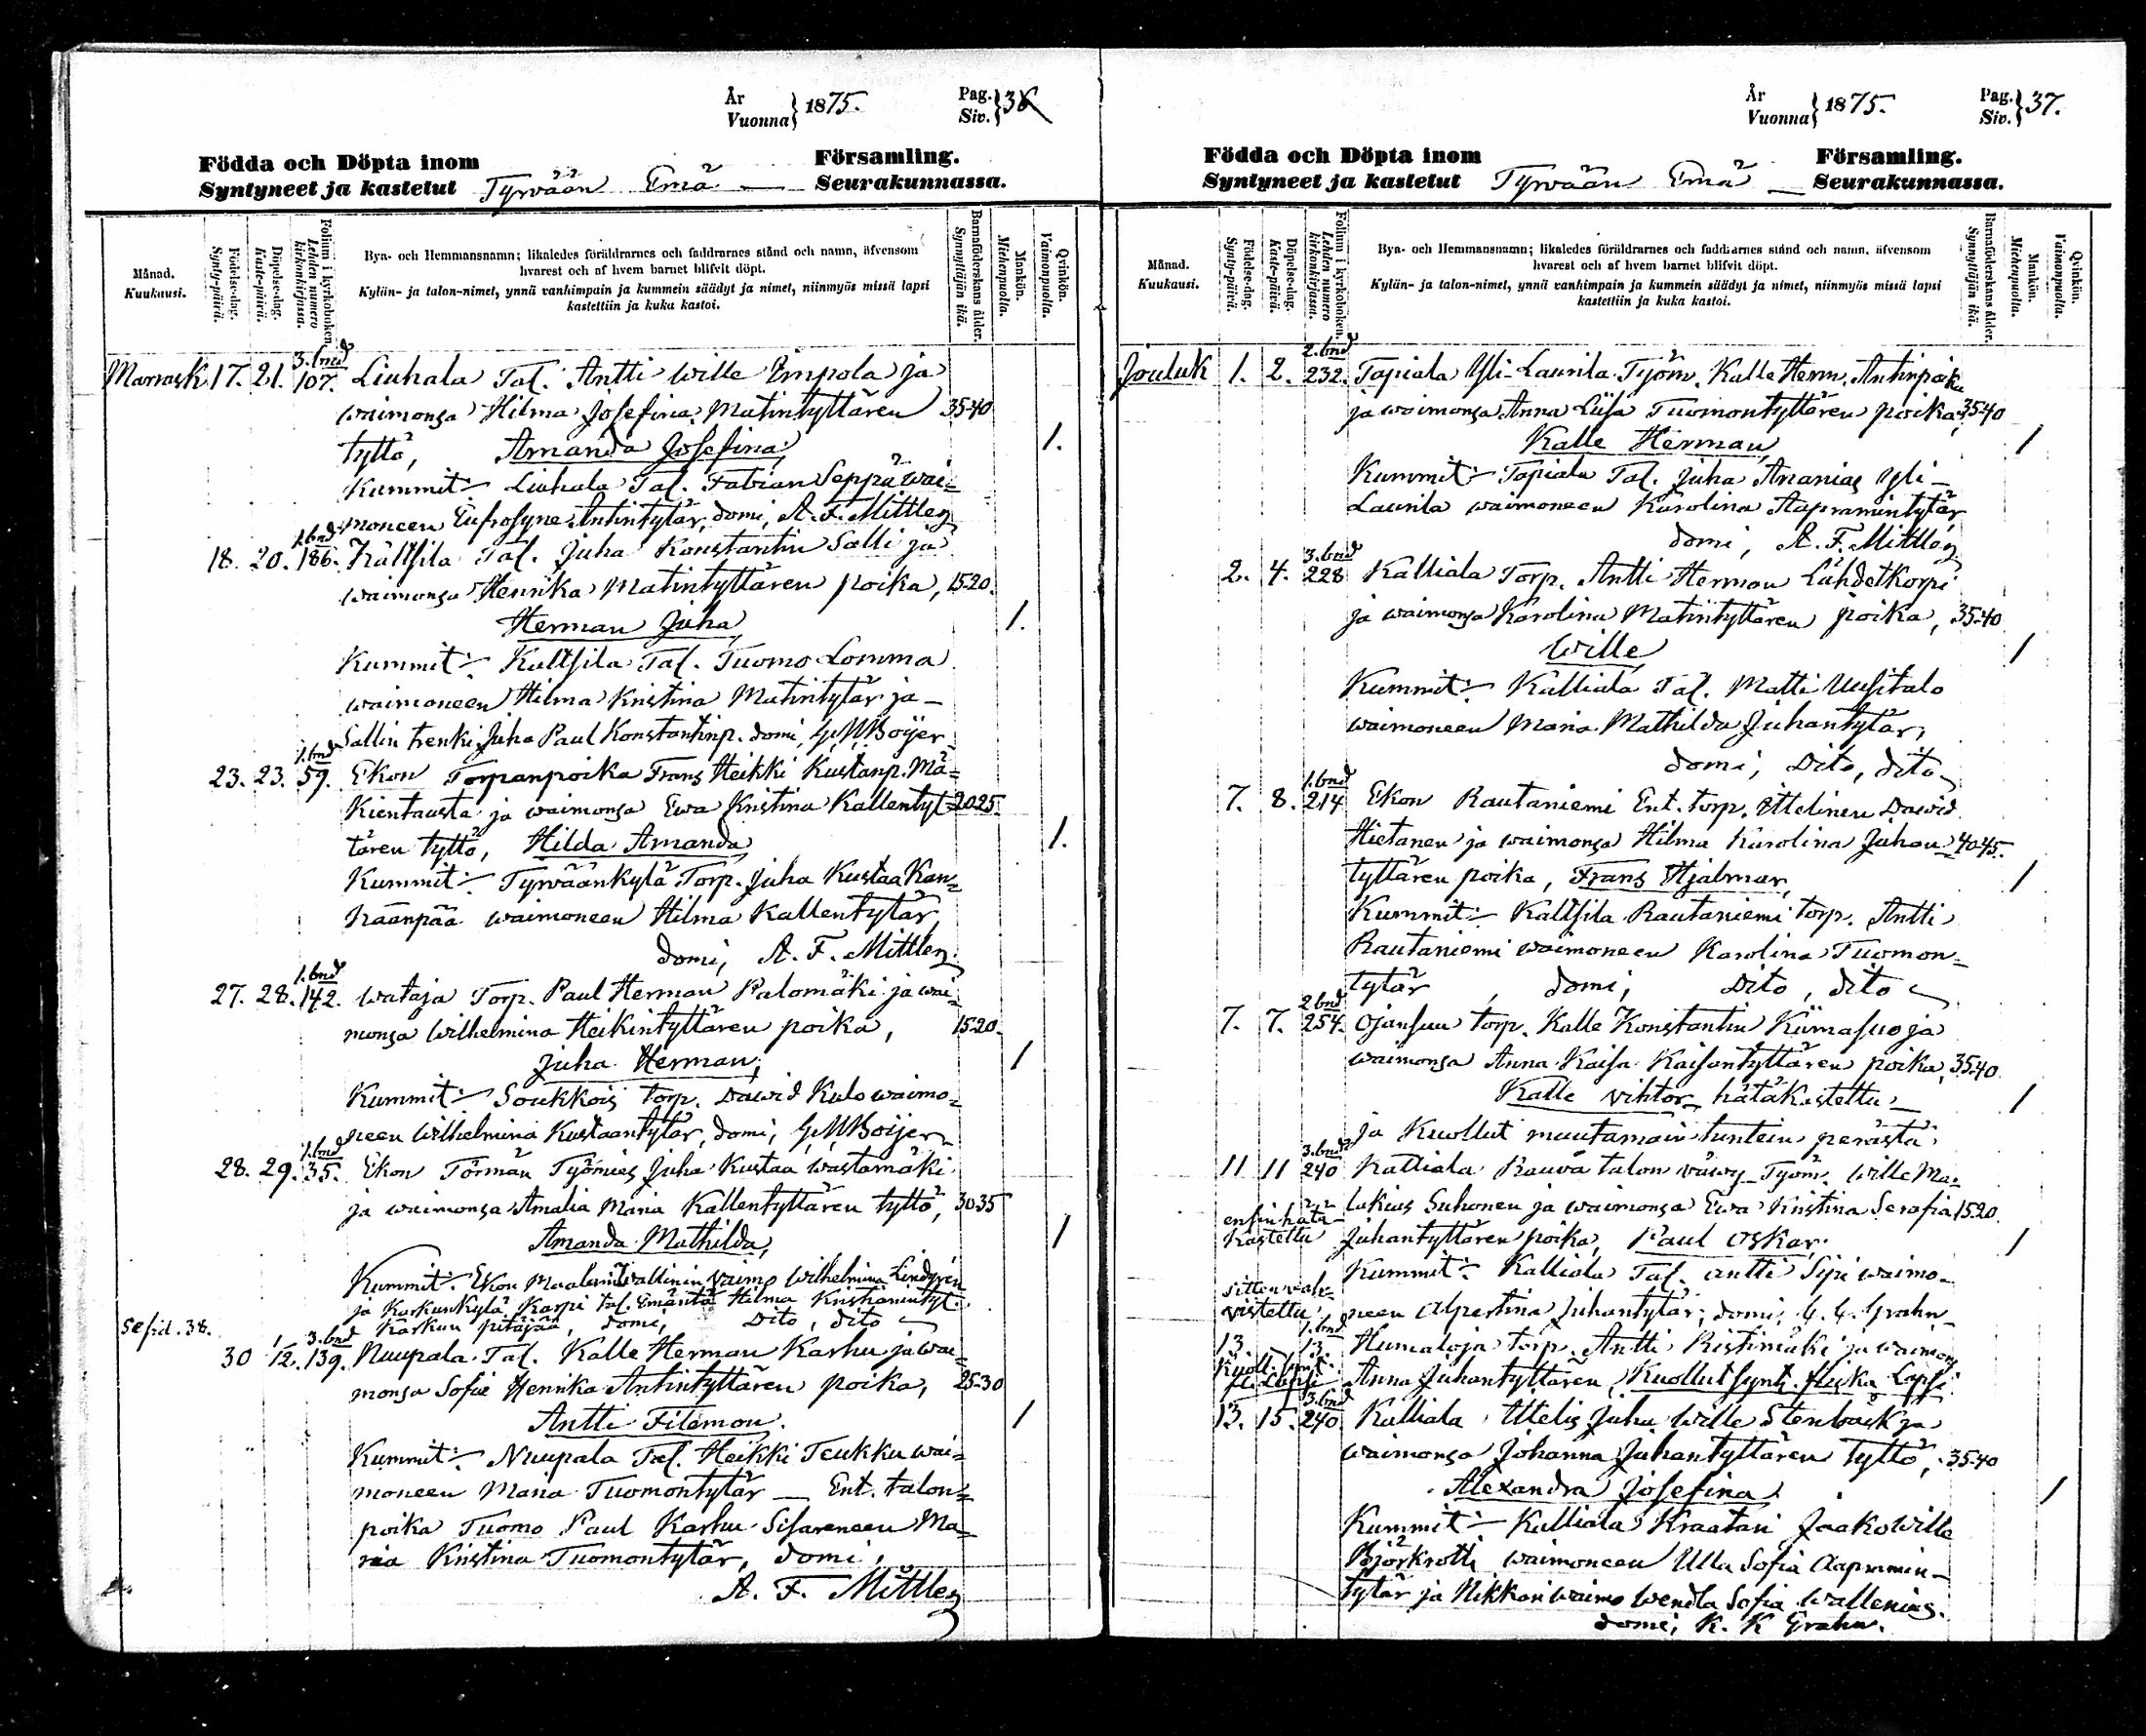 År
Vuonna } 1875.
Pag.
Siv. } 36
Födda och Döpta inom
Syntyneet ja kastetut Tyrvään Emä — Församling.
Seurakunnassa.
Månad.
Kuukausi.
Födelse-dag.
Synty-päivä.
Döpelse-dag.
Kaste-päivä.
Folium i kyrkoboken.
Lehden numero
kirkonkirjassa.
Bya- och Hemmansnamn; likaledes föräldrarnes och faddrarnes stånd och namn, äfvensom
hvarest och af hvem barnet blifvit döpt.
Kylän- ja talon-nimet, ynnä vanhimpain ja kummein säädyt ja nimet, niinmyös missä lapsi
kastettiin ja kuka kastoi.
Barnaföderskans ålder.
Synnyttäjän ikä.
Mankön.
Miehenpuolta.
Qvinkön.
Vaimonpuolta.
Marrask. 17. 21. 3. bnd 107. Liuhala Tal. Antti Wille Pimpola ja
waimonsa Hilma Josefina Matintyttären 35-40
tyttö, Amanda Josefina 1.
Kummit:- Liuhala Tal. Fabian Seppä wai=
moneen Eufrosyne Antintytär, domi, A. F. Mittler
18. 20. 1. bnd 186. Kaltsila Tal. Juha Konstantin Salli ja
waimonsa Henrika Matintyttären poika, 15-20.
Herman Juha 1.
Kummit:- Kaltsila Tal. Tuomo Lomma
waimoneen Hilma Kristina Matintytär ja -
Sallin trenki Juha Paul Konstantinp. domi, G. M. Boijer
23. 23. 1. bnd 59. Ekon Torpanpoika Frans Heikki Kustanp. Mä=
kientausta ja waimonsa Ewa Kristina Kallentyt= 20-25.
tären tyttö, Hilda Amanda 1.
Kummit:- Tyrväänkylä Torp. Juha Kustaa Kan=
kaanpää waimoneen Hilma Kallentytär
domi, A. F. Mittler.
27. 28. 1. bnd 142. Wataja Torp. Paul Herman Palomäki ja wai=
monsa Wilhelmina Heikintyttären poika, 15-20.
Juha Herman, 1
Kummit:- Soukkois torp. Dawid Kulo waimo=
neen Wilhelmina Kustaantytär, domi, G. M. Boijer
28. 29. 1. bnd 35. Ekon Törmän Työmies Juha Kustaa Wastamäki
ja waimonsa Amalia Maria Kallentyttären tyttö, 30-35
Amanda Mathilda, 1
Kummit:- Ekon Wallinin vaimo Wilhelmina Lindgrén
ja Karkunkylä Karpi tal. Emäntä Hilma Kristianintyt.
Karkun pitäjää, domi, Dito, dito
Se sid. 38.
30 1/12. 3. bnd 139. Nuupala Tal. Kalle Herman Karhu ja wai=
monsa Sofia Henrika Antintyttären poika, 25-30
Antti Filemon. 1
Kummit:- Nuupala Tal. Heikki Teukku wai=
moneen Maria Tuomontytär — Ent. talon=
poika Tuomo Paul Karhu Sisareneen Ma=
ria Kristina Tuomontytär, domi,
A. F. Mittler
År
Vuonna } 1875.
Pag.
Siv. } 37.
Födda och Döpta inom
Syntyneet ja kastetut Tyrvään Emä — Församling.
Seurakunnassa.
Månad.
Kuukausi.
Födelse-dag.
Synty-päivä.
Döpelse-dag.
Kaste-päivä.
Folium i kyrkoboken.
Lehden numero
kirkonkirjassa.
Bya- och Hemmansnamn; likaledes föräldrarnes och faddrarnes stånd och namn, äfvensom
hvarest och af hvem barnet blifvit döpt.
Kylän- ja talon-nimet, ynnä vanhimpain ja kummein säädyt ja nimet, niinmyös missä lapsi
kastettiin ja kuka kastoi.
Barnaföderskans ålder.
Synnyttäjän ikä.
Mankön.
Miehenpuolta.
Qvinkön.
Vaimonpuolta.
Jouluk 1. 2. 2. bnd 232. Tapiala Yli-Laurila Työm. Kalle Herm. Antinpoika
ja waimonsa Anna Liisa Tuomontyttären poika, 35-40
Kalle Herman 1
Kummit:- Tapiala Tal. Juha Ananias Yli-
Laurila waimoneen Karolina Aapramintytär
domi, A. F. Mittler
2. 4. 3. bnd 228 Kalliala Torp. Antti Herman Lähdetkorpi
ja waimonsa Karolina Matintyttären poika, 35-40
Wille 1
Kummit:- Kalliala Tal. Matti Uusitalo
waimoneen Maria Mathilda Juhantytär,
domi, Dito, dito
7. 8. 1. bnd 214 Ekon Rautaniemi Ent. torp. Ittelinen Dawid
Hietanen ja waimonsa Hilma Karolina Juhan= 40-45.
tyttären poika, Frans Hjalmar, 1
Kummit:- Kaltsila Rautaniemi torp. Antti
Rautaniemi waimoneen Karolina Tuomon=
tytär, domi, Dito, dito
7. 7. 2 bnd 254. Ojansuu torp. Kalle Konstantin Kiimasuo ja
waimonsa Anna Kaisa Kaisantyttären poika, 35-40.
Kalle Vihtor hätäkastettu 1
ja Kuollut muutamain tuntein perästä
11 11 3. bnd 240 Kalliala Rauvä talon väwy Työm. Wille Ma=
lakias Suhonen ja waimonsa Ewa Kristina Serafia 15-20.
ensin hätä-
kastettu Juhantyttären poika, Paul Oskar. 1
Kummit:- Kalliala Tal. Antti Sipi waimo-
sitten vah=
vistettu neen Alpertina Juhantytär; domi, K. K. Grahn
13. — 1. bnd 13. Humaloja torp. Antti Ristimäki ja waimons
Anna Juhantyttären, Kuollut synt. Lapsi
13. 15. 3. bnd 240 Kalliala Ittelis Juha Wille Stenbäck ja
waimonsa Johanna Juhantyttären tyttö, 35-40
Alexandra Josefina. 1
Kummit:- Kalliala Kraatari Jaako Wille
Björkroth waimoneen Ulla Sofia Aapramin-
tytär ja Nikkari waimo Wendla Sofia Wallenius.
domi, K. K Grahn.